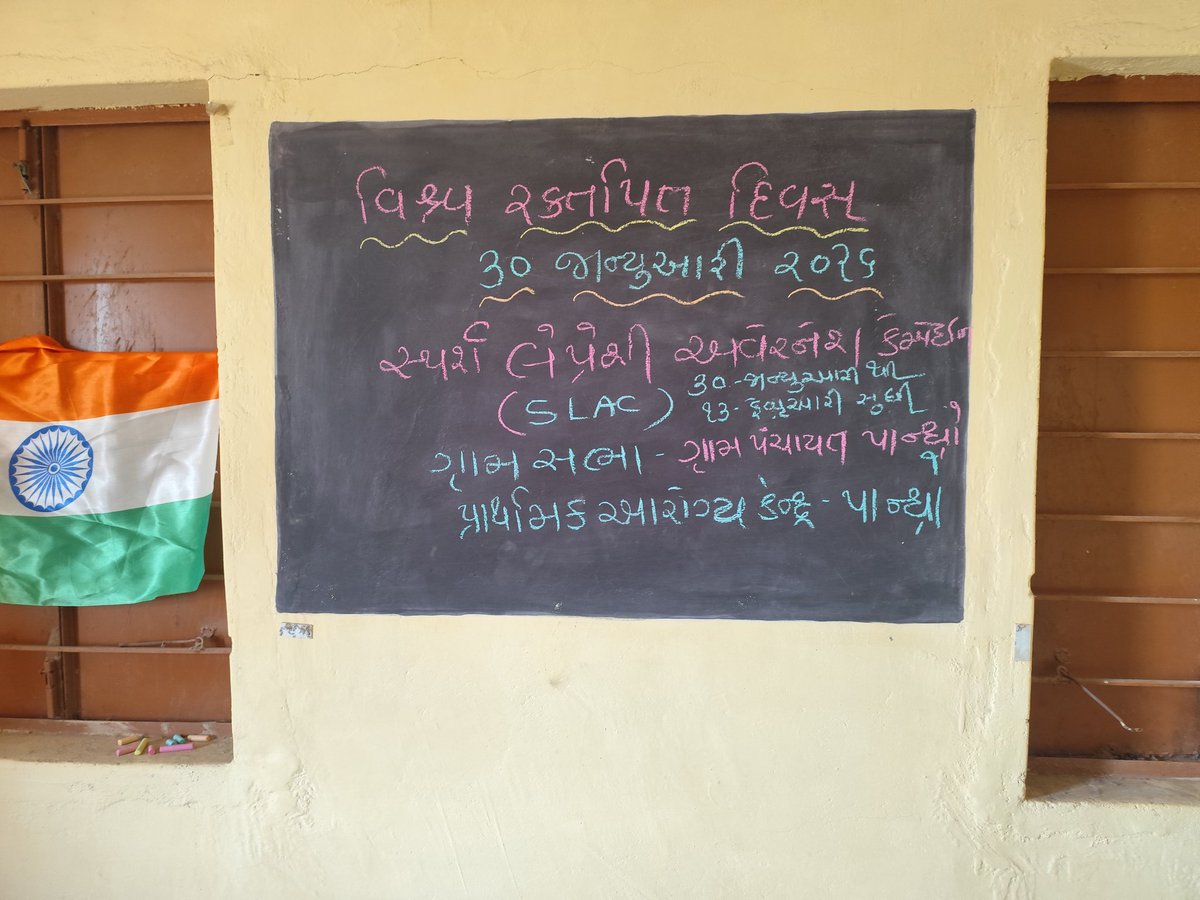 વિશ્વ રક્તપિત દિવસ
૩૦ જાન્યુઆરી ૨૦૨૬
સ્પર્શ લેપ્રેશી અવેરનેશ કેમ્પેઈન
(SLAC) ૩૦-જાન્યુઆરી થી
૧૩-ફેબ્રુઆરી સુધી
ગ્રામ સભા - ગ્રામ પંચાયત પાન્થ્રો ૧
પ્રાર્થામિક આરોગ્ય કેન્દ્ર - પાન્ધ્રો